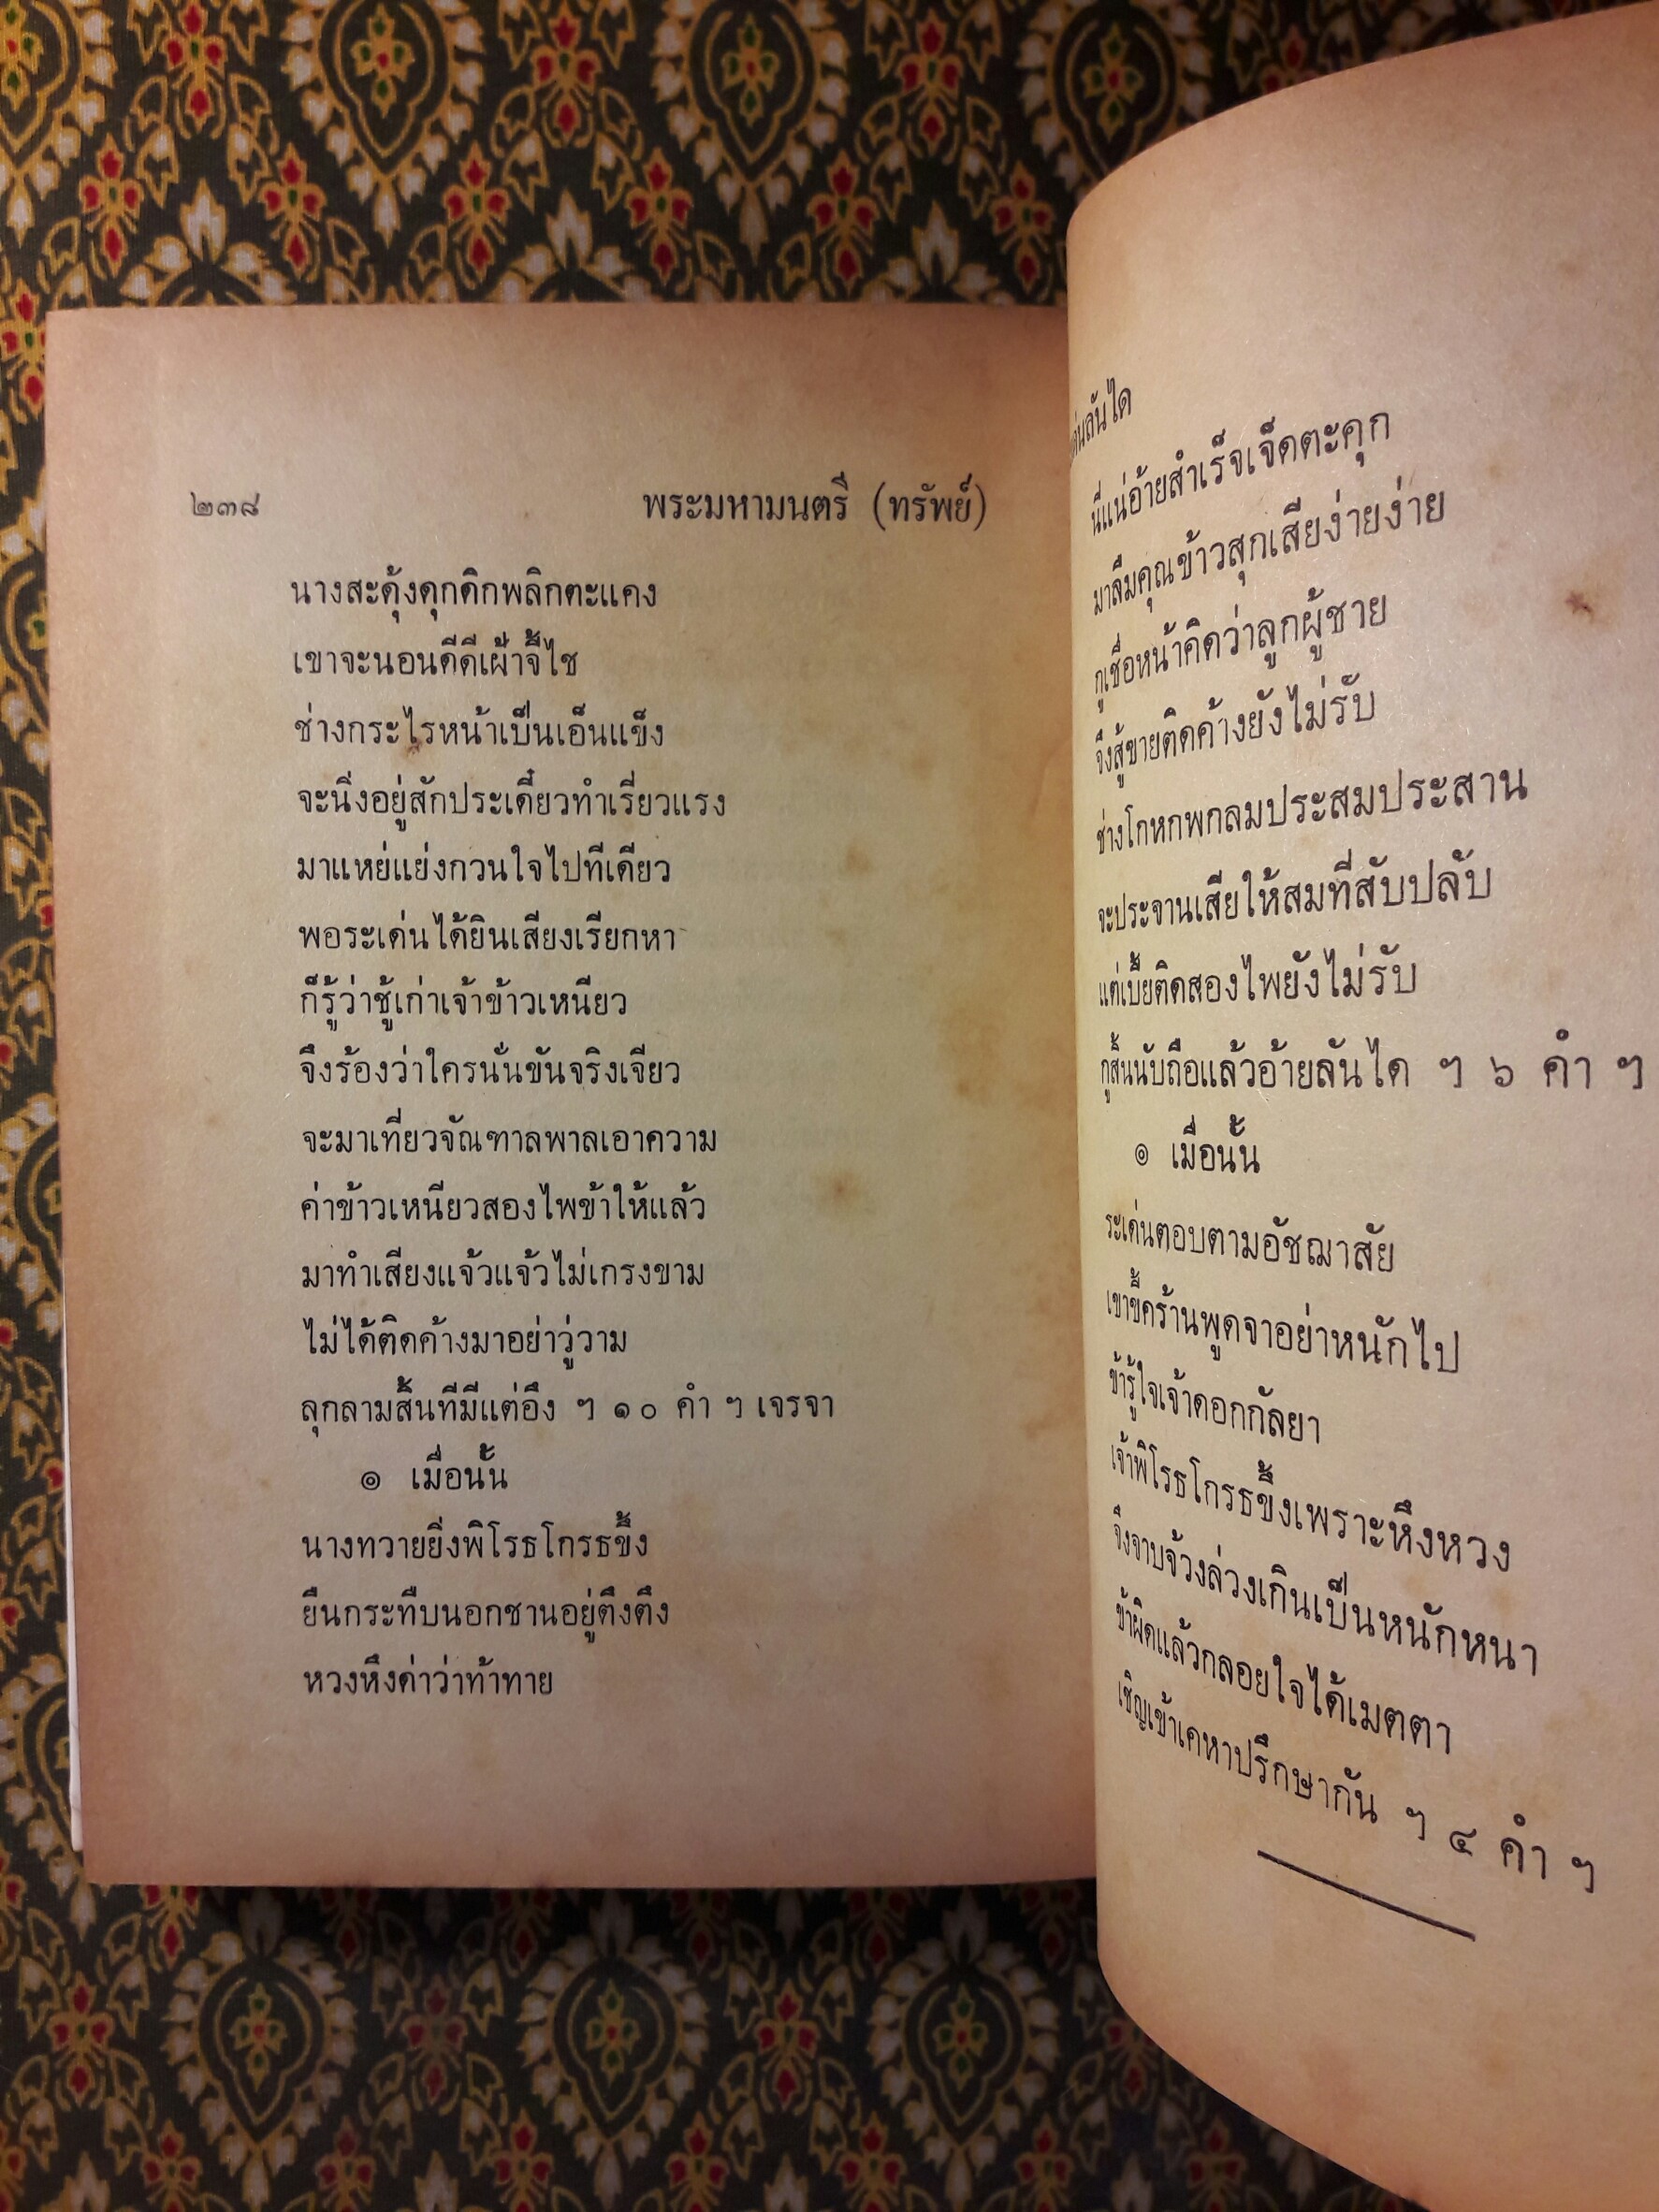 ๒๓๘
พระมหามนตรี (ทรัพย์)
นางสะดุ้งดุกดิกพลิกตะแคง
เขาจะนอนดีดีเฝ้าจี้ไช
ช่างกระไรหน้าเป็นเอ็นแข็ง
จะนิ่งอยู่สักประเดี๋ยวทำเรี่ยวแรง
มาแหย่แย่งกวนใจไปทีเดียว
พอระเด่นได้ยินเสียงเรียกหา
ก็รู้ว่าชู้เก่าเจ้าข้าวเหนียว
จึงร้องว่าใครนั่นขันจริงเจียว
จะมาเที่ยวจัณฑาลพาลเอาความ
ค่าข้าวเหนียวสองไพข้าให้แล้ว
มาทำเสียงแจ้วแจ้วไม่เกรงขาม
ไม่ได้ติดค้างมาอย่าวู่วาม
ลุกลามสิ้นทีมีแต่อึง ฯ ๑๐ คำ ฯ เจรจา
๏ เมื่อนั้น
นางทวายยิ่งพิโรธโกรธขึ้ง
ยืนกระทืบนอกชานอยู่ตึงตึง
หวงหึงด่าว่าท้าทาย
เด่นลันได
นี่แน่อ้ายสำเร็จเจ็ดตะคุก
มาลืมคุณข้าวสุกเสียง่ายง่าย
กูเชื่อหน้าคิดว่าลูกผู้ชาย
จึงสู้ขายติดค้างยังไม่รับ
ช่างโกหกพกลมประสมประสาน
จะประจานเสียให้สมที่สับปลับ
แต่เบี้ยติดสองไพยังไม่รับ
กูสิ้นนับถือแล้วอ้ายลันได ฯ ๖ คำ ฯ
๏ เมื่อนั้น
ระเด่นตอบตามอัชฌาสัย
เขาขี้คร้านพูดจาอย่าหนักไป
ข้ารู้ใจเจ้าดอกกัลยา
เจ้าพิโรธโกรธขึ้งเพราะหึงหวง
จึงจาบจ้วงล่วงเกินเป็นหนักหนา
ข้าผิดแล้วกลอยใจได้เมตตา
เชิญเข้าเคหาปรึกษากัน ฯ ๔ คำ ฯ